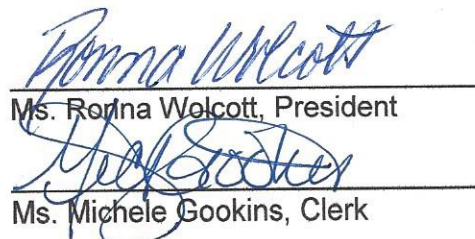 Ronna Wolcott
Ms. Ronna Wolcott, President
Ms. Michele Gookins, Clerk